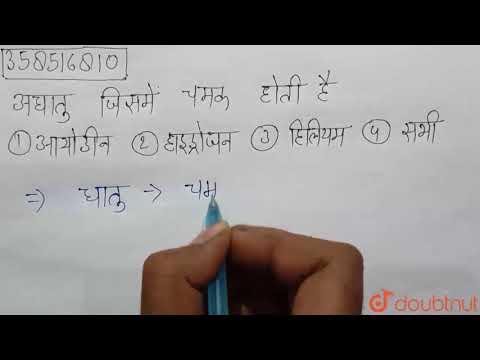 358516810
अधातु जिसमें चमक होती है
① आयोडीन ② हाइड्रोजन ③ हिलियम ④ सभी
⇒ धातु → चम
doubtnut